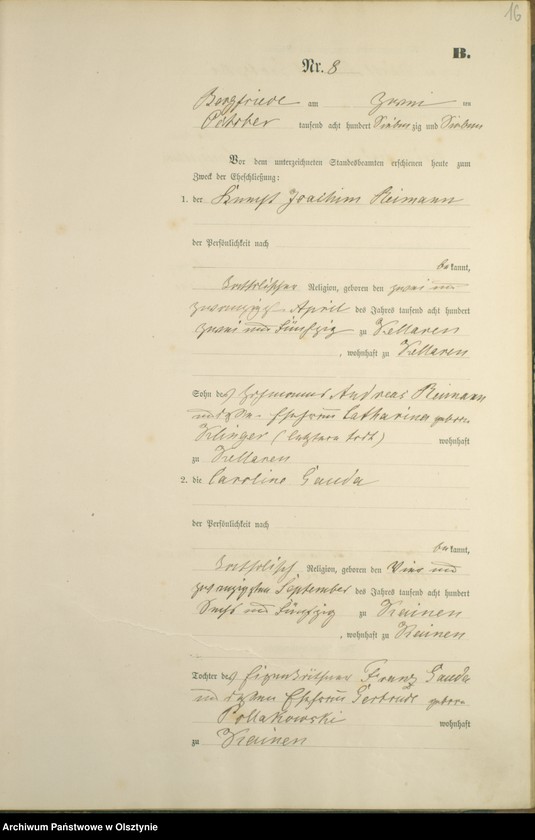 16
B.
Nr. 8
Bergfriede am zwei ten
October tausend acht hundert Sieben zig und Sieben
Vor dem unterzeichneten Standesbeamten erschienen heute zum
Zweck der Eheschließung:
1. der Knecht Joachim Reimann
der Persönlichkeit nach
be kannt,
katholischer Religion, geboren den zwei und
zwanzigst April des Jahres tausend acht hundert
zwei und Fünfzig zu Kellaren
, wohnhaft zu Kellaren
Sohn des Andreas Reimann
und Ehefrau Catharina gebor.
Klinger (letztere todt) wohnhaft
zu Kellaren
2. die Caroline Gauda
der Persönlichkeit nach
be kannt,
katholisch Religion, geboren den Vier und
zwanzigsten September des Jahres tausend acht hundert
Sechs und Fünfzig zu Krainen
, wohnhaft zu Krainen
Tochter des Eigenkäthner Franz Gauda
und dessen Ehefrau Gertrude gebor.
Pollakowski wohnhaft
zu Krainen
Archiwum Państwowe w Olsztynie